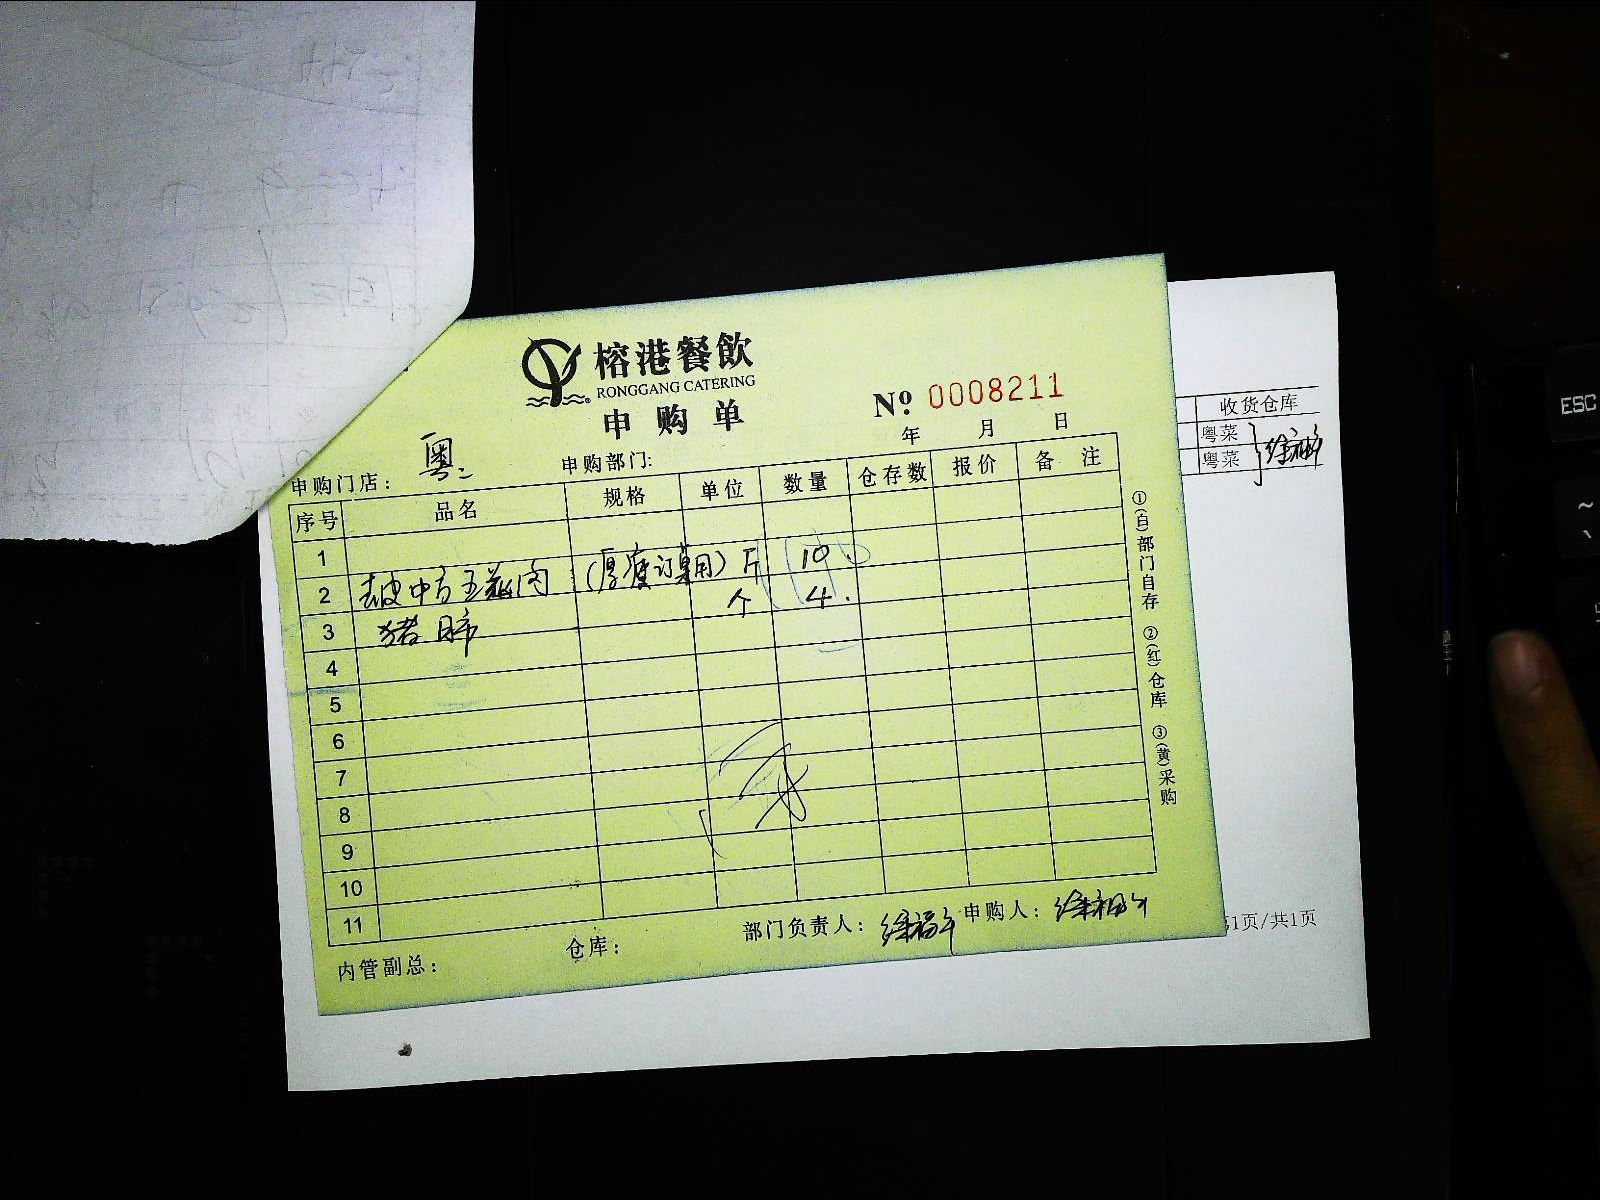 榕港餐飲
RONGGANG CATERING
申购单
№ 0008211
年 月 日
申购门店： 粤二 申购部门:
序号 品名 规格 单位 数量 仓存数 报价 备注
1
2 去皮中方五花肉 （厚度订桌用） 斤 10
3 猪肺 个 4.
4
5
6
7
8
9
10
11
内管副总： 仓库： 部门负责人： 申购人：
①(白)部门自存 ②(红)仓库 ③(黄)采购
收货仓库
粤菜
粤菜
1页/共1页
ESC